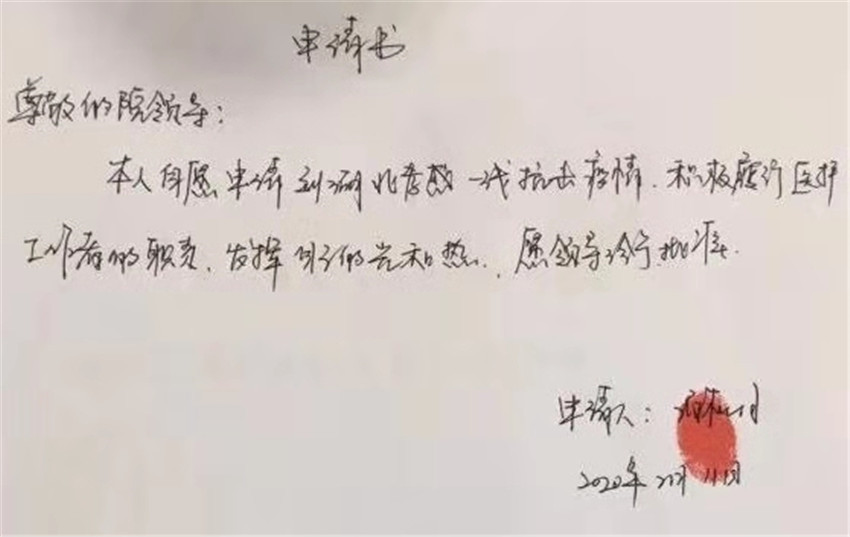 申请书
尊敬的院领导：
本人自愿申请到湖北孝感一线抗击疫情，积极履行医护
工作者的职责，发挥自己的光和热，愿领导给予批准。
申请人：
2020年2月11日